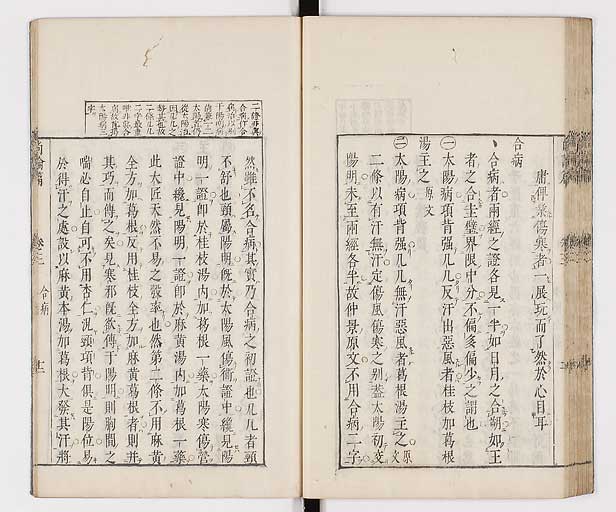 庸俾業傷寒者一展玩而了然於心目耳
合病
合病者兩經之證各見一半如日月之合朔如王
者之合圭璧界限中分不偏多偏少之謂也
㊀太陽病項背强几几反汗出惡風者桂枝加葛根
湯主之 原文
㊁太陽病項背强几几無汗惡風者葛根湯主之 原文
二條以有汗無汗定傷風傷寒之別蓋太陽初交
陽明未至兩經各半故仲景原文不用合病二字
然雖不名合病其實乃合病之初證也几几者頸
不舒也頸屬陽明既於太陽風傷衞證中纔見陽
明一證即於桂枝湯內加葛根一藥太陽寒傷營
證中纔見陽明一證即於麻黃湯內加葛根一藥
此大匠天然不易之彀率也然第二條不用麻黃
全方加葛根反用桂枝全方加麻黃葛根者則并
其巧而傳之矣見寒邪既欲傳于陽明則胸間之
喘必自止自可不用杏仁況頸項背俱是陽位易
於得汗之處設以麻黃本湯加葛根大發其汗將
尚論篇
卷三
合病